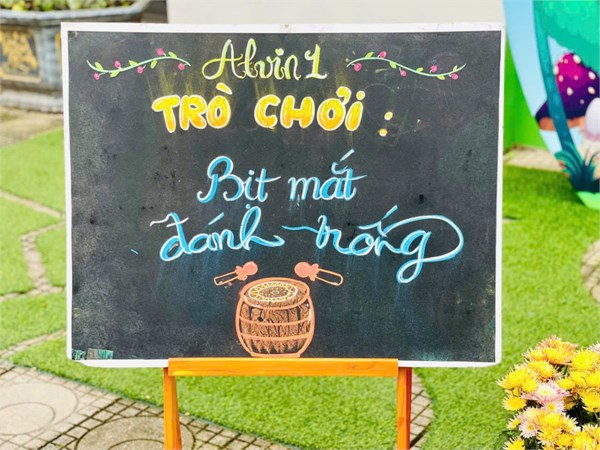 Alvin 1
TRÒ CHƠI :
Bịt mắt
đánh trống